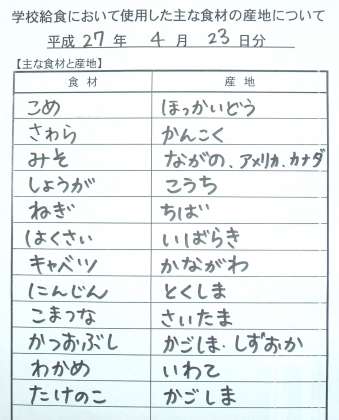 学校給食において使用した主な食材の産地について
平成 27 年 4 月 23 日分
【主な食材と産地】
食材 産地
こめ ほっかいどう
さわら かんこく
みそ ながの、アメリカ、カナダ
しょうが こうち
ねぎ ちば
はくさい いばらき
キャベツ かながわ
にんじん とくしま
こまつな さいたま
かつおぶし かごしま・しずおか
わかめ いわて
たけのこ かごしま